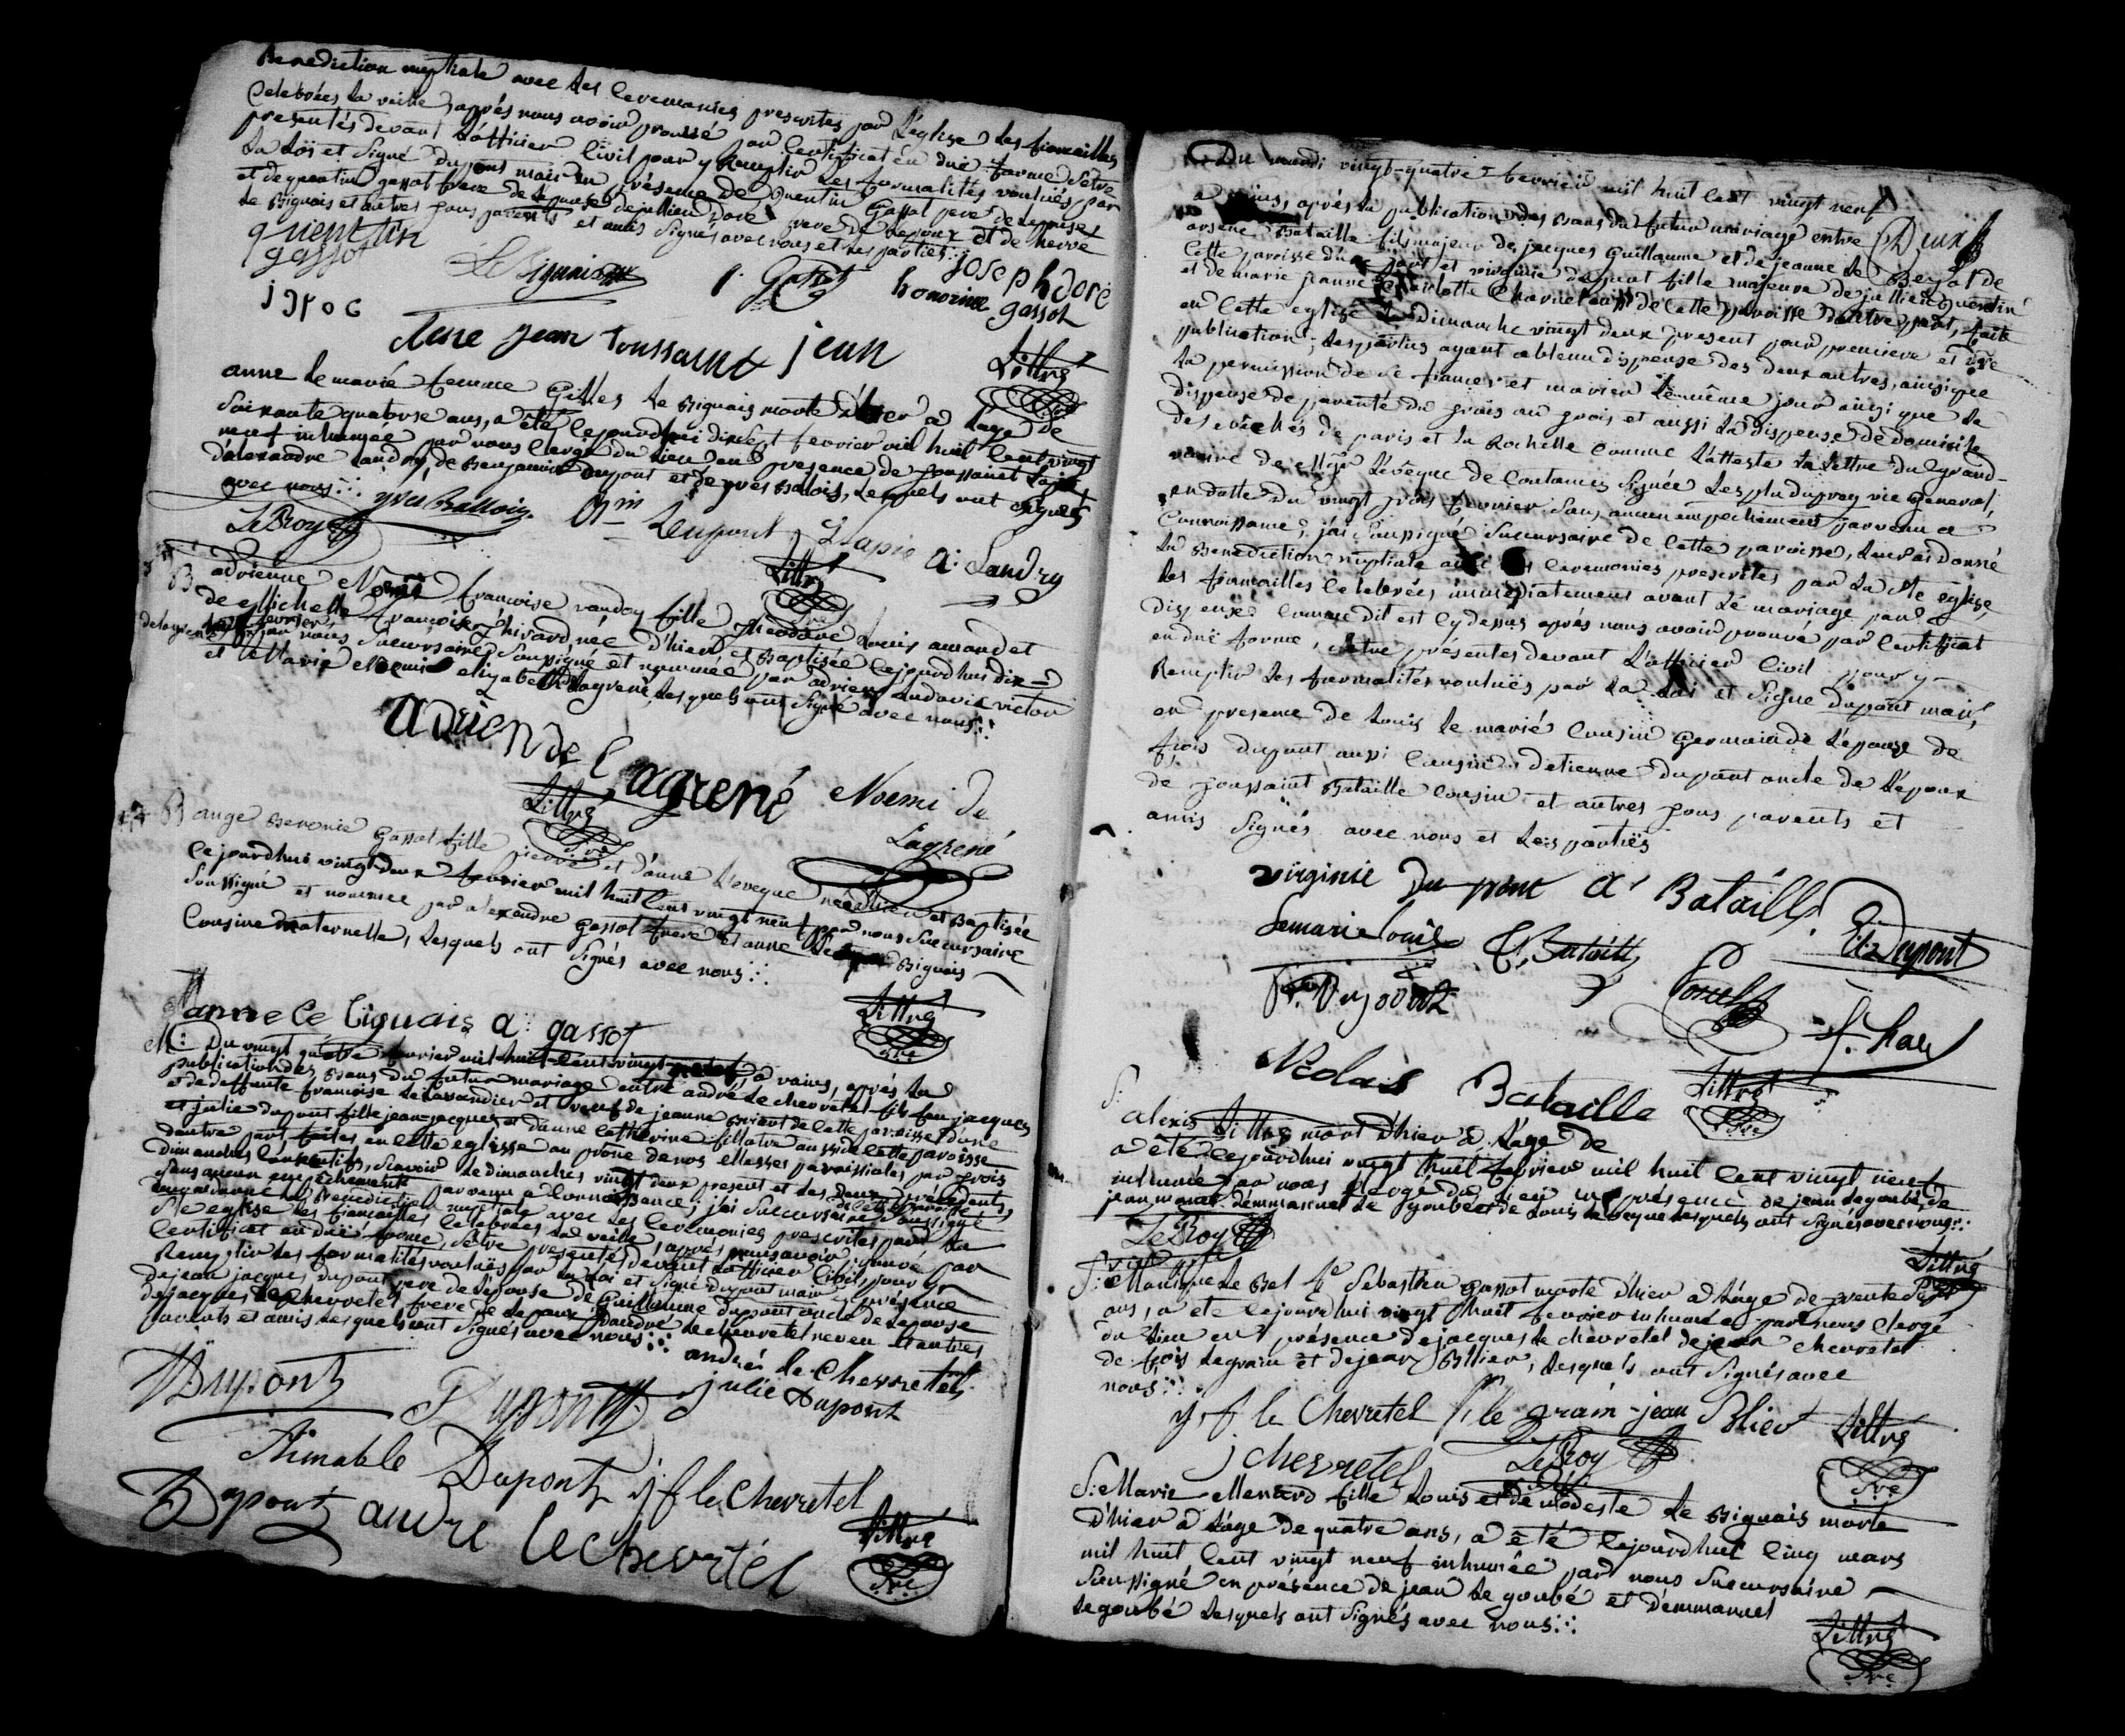 Benediction nuptiale avec les ceremonies prescrites par L'église, les fiancailles
Celebrées la veille, apprés nous avoir prouvé par Certificat en duë forme s'etre
presentés devant L'officier Civil pour y Remplir Les formalités vouluës par
La Loi et Signé dupont mair en présence de Quentin Gassot pere de L'epouse,
et de quentin gassot frere de L'epouse de julien Doré pere de L'epoux et de herve
Le Biguais et autres tous parents et amis Signés avec nous et les parties
quientin
gassot
Le Biguais
q. Gassot
honorine
gassot
joseph doré
jean toussaint jean
Littré
anne Le marié femme Gilles Le Biguais morte d'hier a L'age de
Soixante quatorse ans, a été Cejourdhui dixsept fevrier mil huit Cent vingt
neuf inhumée par nous Clergé du lieu en presence de toussaint Lapie,
d'alexandre Landry, de Benjamin dupont et de yves Balois, Lesquels ont Signés
avec nous
LeRoy
yves Ballois
Bin Dupont
Lapie
A: Landry
Littré
B
adrienne Noemie francoise fille theodore Louis amand et
de Michelle francoise née D'hier et Baptisée Cejourdhui dix
fevrier par nous Succursaire Soussigné et nommée par adrien Ludovic victor
de lagrené et Marie Noemie elizabeth de Lagrené, Lesquels ont Signé avec nous
Adrien de Lagrené
Noemi de
Lagrené
Littré
B ange Beronie Gassot fille pierre et d'anne L'eveque née d'hier et Baptisée
Cejourdhui vingt deux fevrier mil huit Cent vingt neuf par nous Succursaire
Soussigné et nommée par alexandre Gassot frere et anne Le Biguais
Cousine maternelle, Lesquels ont Signés avec nous
anne Le Biguais a: gassot
Littré
M: Du vingt quatre fevrier mil huit Cent vingt neuf, a vains, après La
publication des Bans du futur mariage entre andré Le chevretel fils feu jacques
et de deffunte francoise Le Lavandier et veuf de jeanne Briant de Cette paroisse d'une
et julie dupont fille jean-jacques et d'anne Catherine fillatre aussi de Cette paroisse
d'autre part, faites en Cette eglise au prône de nos Messes paroissiales par trois
Dimanches Consecutifs, Scavoir Le dimanches vingt deux present et Les deux precedents,
Sans aucun empêchement parvenu a Connoissance, j'ai Succursaire Soussigné
de Cette paroisse
Leur ai donné la Benediction nuptiale avec Les Ceremonies prescrites par La
Ste eglise Les fiancailles Celebrées La veille, après nous avoir prouvé par
Certificat en duë forme, S'etre presentés devant L'officier Civil, pour y
Remplir Les formalités vouluës par La Loi et Signé dupont mair en présence
de jean jacques dupont pere de L'epouse de Guillaume dupont oncle de L'epouse
de jacques Le Chevretel frere de L'epoux, d'andré Le chevretel neveu et autres
parents et amis Lesquels ont Signés avec nous
andré le Chevretel
Dupont
Dupont
julie Dupont
Aimable Dupont
j f le Chevretel
Dupont andre le Chevretel
Littré
Du mardi vingt-quatre fevrier mil huit Cent vingt neuf
a vains, après La publication des Bans du futur mariage entre
arsene Bataille fils majeur de jacques Guillaume et de jeanne Le de
Cette paroisse d'une part et virginie dupont fille majeure de julien quentin
et de marie jeanne Charlotte Charuel aussi de Cette paroisse d'autre part, faite
en Cette eglise Le Dimanche vingt deux present pour premiere et
publication; Les parties ayant obtenu dispense des deux autres, ainsi que
La permission de Se fiancer et marier Le même jour ainsi que La
dispense de parenté du trois au trois et aussi La dispense de domicile
des evêchés de paris et La Rochelle Comme L'atteste La Lettre du grand-
vicaire de Mgr L'évêque de Coutances Signée Lesplu dupray vic General,
en datte du vingt trois fevrier Sans aucun empêchement parvenu a
Connoissance, j'ai Soussigné Succursaire de Cette paroisse, Leur ai donné
La Benediction nuptiale avec Les Ceremonies prescrites par La Ste eglise,
Les fiancailles Celebrées immediatement avant Le mariage par
dispense Comme dit est Cy dessus après nous avoir prouvé par Certificat
en duë forme, S'etre présentés devant L'officier Civil pour y
Remplir Les formalités vouluës par La Loi et Signé dupont mair,
en presence de Louis Le marié Cousin Germain de L'epouse de
frois dupont aussi Cousin, d'etienne Dupont oncle de L'epoux
de toussaint Bataille Cousin et autres tous parents et
amis Signés avec nous et Les parties
virginie Du pont
A Bataille
Lemarie louis
T. Bataille
Et. Dupont
F. Dupont
Nicolas Bataille
Littré
S:
alexis Littré mort d'hier a L'age de
a été Cejourdhui vingt huit fevrier mil huit Cent vingt neuf
inhumé par nous Clergé du Lieu en présence de jean Legoubé, de
jean d'emmanuel Le goubé et de Louis Leveque Lesquels ont Signés avec nous
LeRoy
Littré
S: Monique Le Bel fe Sebastien Gassot morte d'hier a L'age de trente Sept
ans, a été Cejourdhui vingt huit fevrier inhumée par nous Clergé
du Lieu en présence de jacques Le chevretel de jean chevretel
de frois Legrain et de jean Blier, Lesquels ont Signés avec
nous
j f le Chevretel
f. le grain
jean Blier
Littré
j chevretel
LeRoy
S: Marie Menard fille Louis et de modeste Le Biguais morte
d'hier a L'age de quatre ans, a été Cejourdhui Cinq mars
mil huit Cent vingt neuf inhumée par nous Succursaire
Soussigné en présence de jean Le goubé et d'emmanuel
Legoubé Lesquels ont Signés avec nous
Littré